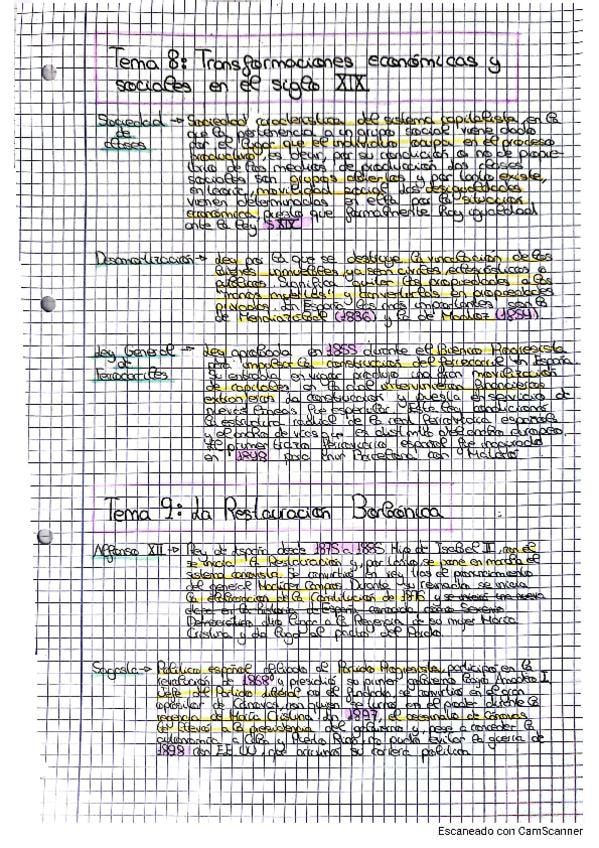 Tema 8: Transformaciones económicas y
sociales en el siglo XIX
Sociedad de clases → Sociedad característica del sistema capitalista, en la
que la pertenencia a un grupo social viene dado
por el lugar que el individuo ocupa en el proceso
productivo, es decir, por su condición o no de propie
tario de los medios de producción. Las clases
sociales son grupos abiertos y por tanto existe,
en teoría, movilidad social. Las desigualdades
vienen determinadas en ella por la situación
económica, puesto que formalmente hay igualdad
ante la ley. S.XIX
Desamortización → Ley por la que se destruye la vinculación de los
bienes inmuebles ya sean civiles, eclesiásticos o
públicos. Significa quitar las propiedades a las
"manos muertas" y convertirlas en propiedades
privadas. En España las más importantes son la
de Mendizábal (1836) y la de Madoz (1854)
Ley General de Ferrocarriles → Ley aprobada en 1855 durante el Bienio Progresista
para impulsar la construcción del ferrocarril en España.
gran movilización
de capitales en la cual intervinieron financieras
extranjeras. La construcción y puesta en servicio de
nuevas líneas fue espectacular. Esta ley condicionó
la estructura radial de la red ferroviaria española
y el ancho de vías distinto del ancho europeo.
El primer trazo ferroviario español fue inaugurado
en 1848 para unir Barcelona con Mataró
Tema 9: La Restauración Borbónica
Alfonso XII → Rey de España desde 1875 a 1885. Hijo de Isabel II, con él
se inicia la Restauración y, por tanto, se pone en marcha el
sistema canovista. Se convirtió en rey tras el pronunciamiento
del general Martínez Campos. Durante su reinado se inicia
la elaboración de la Constitución de 1876 y se inicia una nueva
etapa en la historia de España conocida como Sexenio
Democrático dio lugar a la Regencia de su mujer María
Cristina y da lugar al pacto del Pardo.
Sagasta → Político español afiliado al Partido Progresista, participó en la
revolución de 1868 y presidió su primer gobierno bajo Amadeo I.
Jefe del Partido liberal se convirtió en el gran
opositor de Cánovas, con quien se turnó en el poder durante la
regencia de María Cristina. En 1897, el asesinato de Cánovas
le elevó a la presidencia del gobierno y, pese a conceder la
autonomía a Cuba y Puerto Rico, no pudo evitar la guerra de
1898 con EE UU, que arruinó su carrera política.
Escaneado con CamScanner